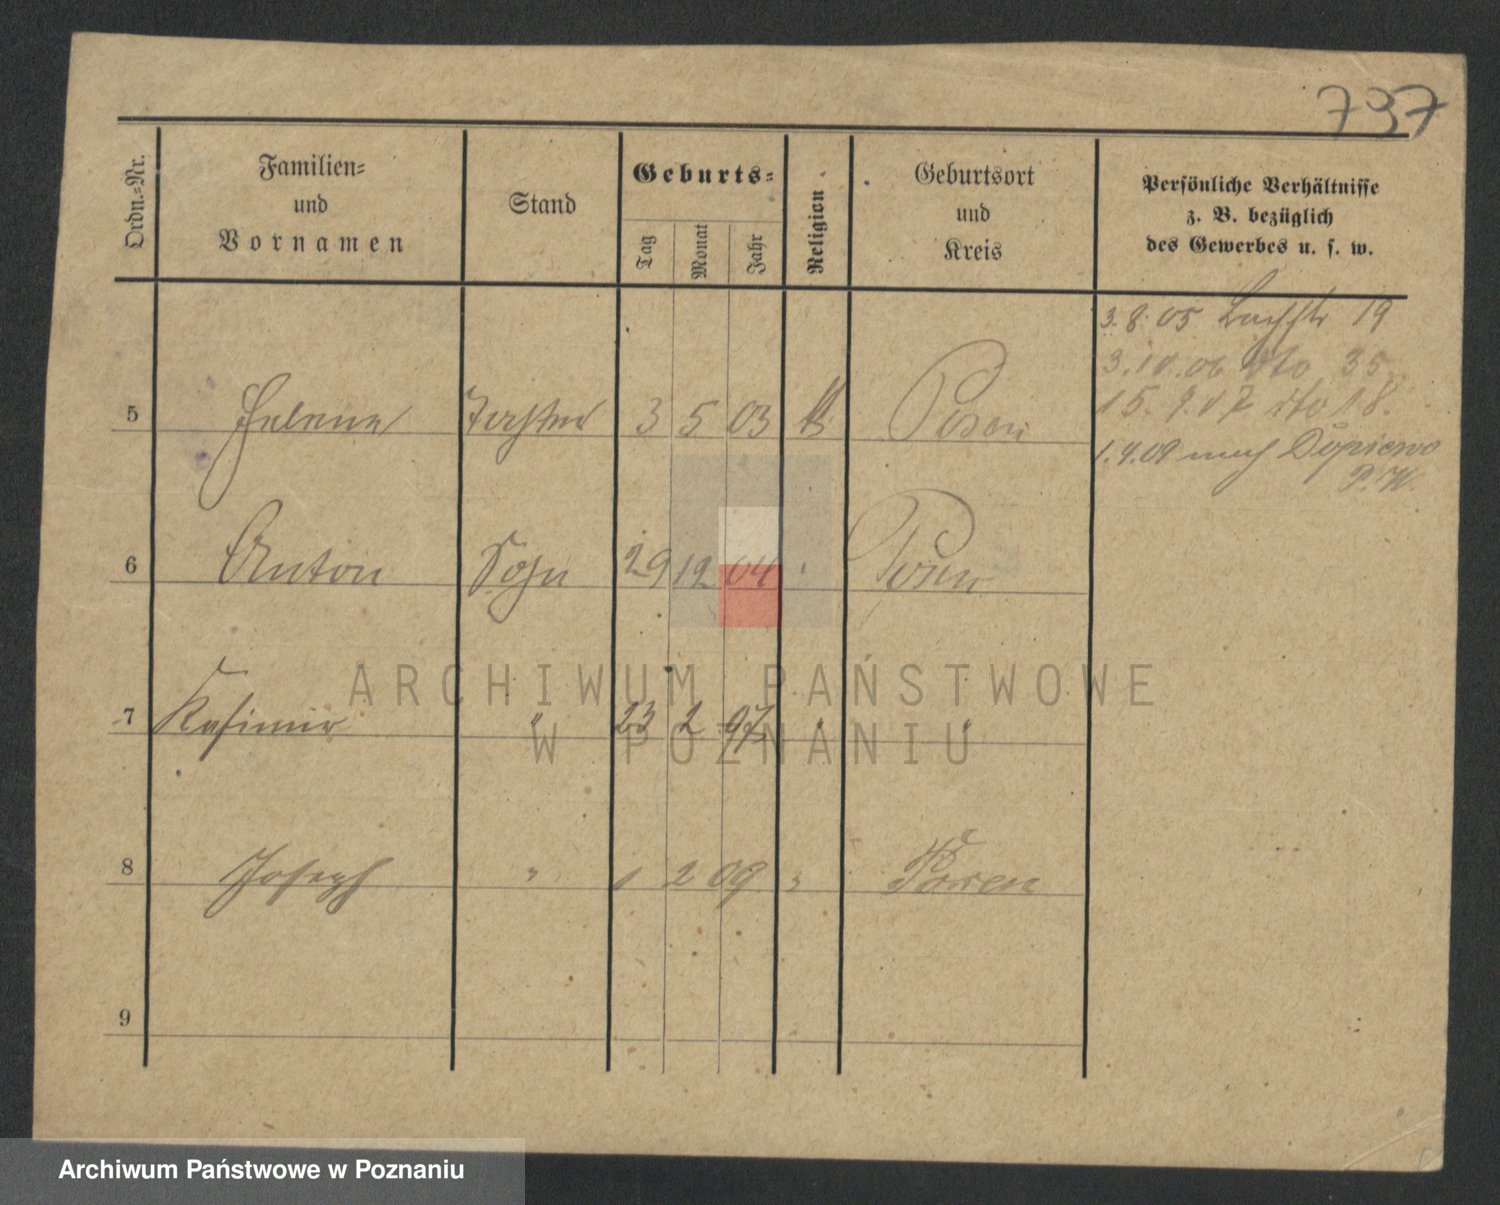 737
Ordn.-Nr.
Familien-
und
Vornamen
Stand
Geburts-
Tag
Monat
Jahr
Religion
Geburtsort
und
Kreis
Persönliche Verhältnisse
z. B. bezüglich
des Gewerbes u. s. w.
3.8.05 Bachstr 19
3.10.06 dto 35.
15. 9.07 dto 18.
1.4.09 nach Dopiewo
P. W.
5 Helene Tochter 3 5 03 Posen
6 Anton Sohn 29 12 04 Posen
7 Kasimir " 23 2 07 " "
8 Joseph " 1 2 09 " Posen
9
ARCHIWUM PAŃSTWOWE
W POZNANIU
Archiwum Państwowe w Poznaniu